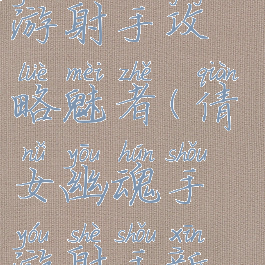 游射手攻
lüè mèi zhě qiàn
略魅者(倩
nǚ yōu hún shǒu
女幽魂手
yóu shè shǒu xīn
游射手新